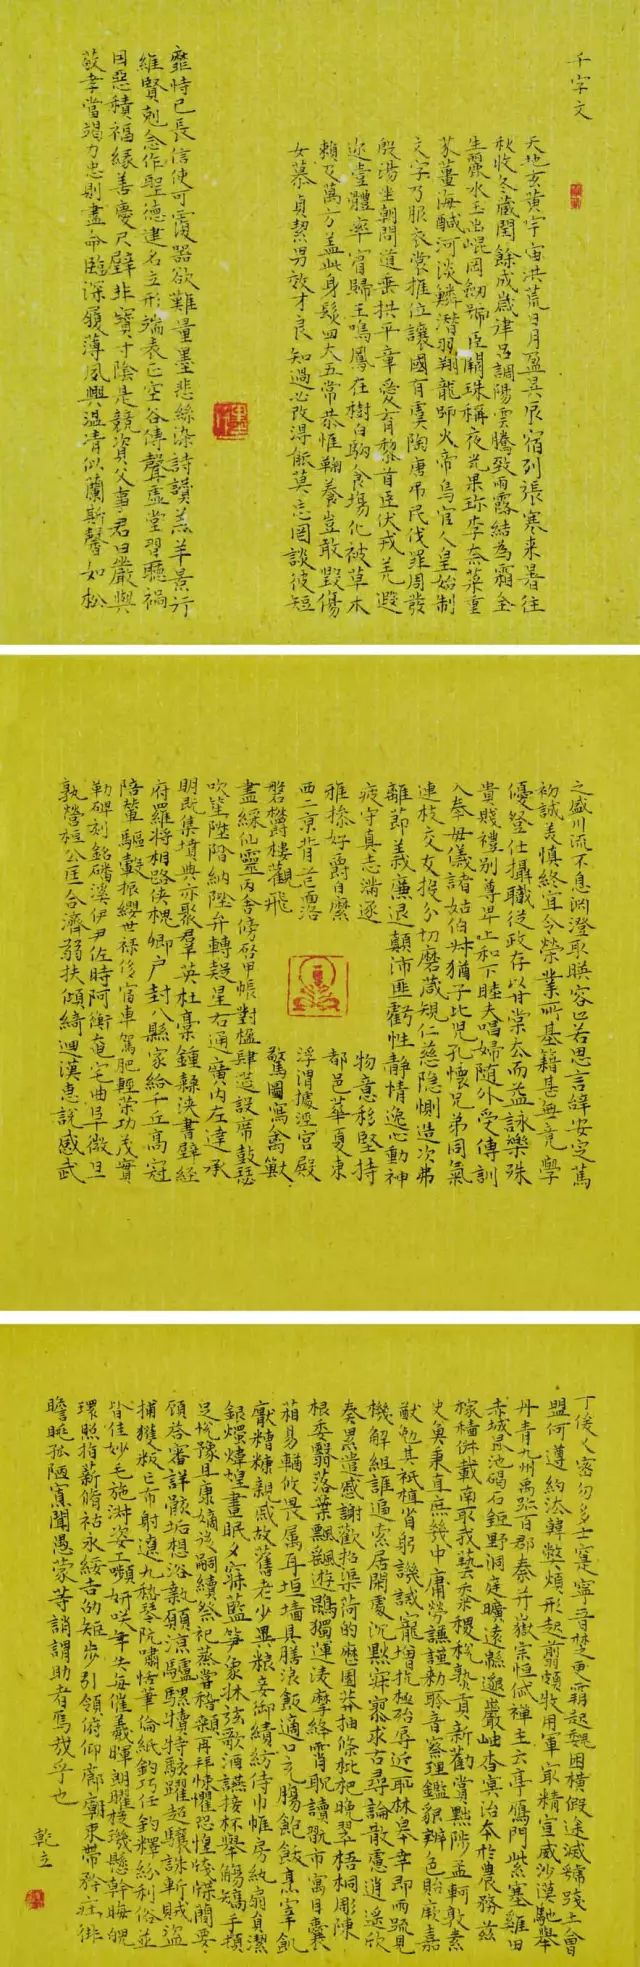 千字文
天地玄黃宇宙洪荒日月盈昃辰宿列張寒来暑往
秋收冬藏閏餘成歲律呂調陽雲騰致雨露結為霜金
生麗水玉出崐岡劒號巨闕珠稱夜光果珍李柰菜重
芥薑海鹹河淡鱗潛羽翔龍師火帝鳥官人皇始制
文字乃服衣裳推位讓國有虞陶唐吊民伐罪周發
殷湯坐朝問道垂拱平章愛育黎首臣伏戎羌遐
迩壹體率賓歸王鳴鳳在樹白駒食場化被草木
賴及萬方蓋此身髮四大五常恭惟鞠養豈敢毀傷
女慕貞絜男效才良知過必改得能莫忘罔談彼短
靡恃己長信使可覆器欲難量墨悲絲染詩讚羔羊景行
維賢剋念作聖德建名立形端表正空谷傳聲虛堂習聽禍
因惡積福緣善慶尺璧非寶寸陰是競資父事君曰嚴與
敬孝當竭力忠則盡命臨深履薄夙興溫清似蘭斯馨如松
之盛川流不息淵澄取暎容止若思言辭安定篤
初誠美慎終宜令榮業所基籍甚無竟學
優登仕攝職從政存以甘棠去而益詠樂殊
貴賤禮別尊卑上和下睦夫唱婦隨外受傅訓
入奉母儀諸姑伯叔猶子比兒孔懷兄弟同氣
連枝交友投分切磨箴規仁慈隱惻造次弗
離節義廉退顛沛匪虧性靜情逸心動神
疲守真志滿逐物意移堅持
雅操好爵自縻都邑華夏東
西二京背芒面洛浮渭據涇宮殿
磐鬱樓觀飛驚圖寫禽獸
畫綵仙靈丙舍傍啓甲帳對楹肆筵設席鼓瑟
吹笙陞階納陛弁轉疑星右通廣內左達承
明既集墳典亦聚羣英杜稾鍾隸漆書壁經
府羅將相路俠槐卿戶封八縣家給千兵高冠
陪輦驅轂振纓世祿侈富車駕肥輕策功茂實
勒碑刻銘磻溪伊尹佐時阿衡奄宅曲阜微旦
孰營桓公匡合濟弱扶傾綺迴漢惠說感武
丁俊乂密勿多士寔寧晉楚更霸趙魏困橫假途滅虢踐土會
盟何遵約法韓弊煩刑起翦頗牧用軍最精宣威沙漠馳譽
丹青九州禹跡百郡秦并嶽宗恒岱禪主云亭鴈門紫塞雞田
赤城昆池碣石鉅野洞庭曠遠綿邈巖岫杳冥治本於農務茲
稼穡俶載南畝我藝黍稷稅熟貢新勸賞黜陟孟軻敦素
史魚秉直庶幾中庸勞謙謹勑聆音察理鑑貌辨色貽厥嘉
猷勉其祗植省躬譏誡寵增抗極殆辱近恥林皋幸即兩疏見
機解組誰逼索居閑處沉默寂寥求古尋論散慮逍遙欣
奏累遣慼謝歡招渠荷的歷園莽抽條枇杷晚翠梧桐彫陳
根委翳落葉飄颻遊鵾獨運淩摩絳霄耽讀翫市寓目囊
箱易輶攸畏屬耳垣墻具膳飡飯適口充腸飽飫烹宰飢
厭糟糠親戚故舊老少異粮妾御績紡侍巾帷房紈扇員潔
銀燭煒煌晝眠夕寐藍笋象牀弦歌酒讌接杯舉觴矯手頓
足悅豫且康嫡後嗣續祭祀蒸嘗稽顙再拜悚懼恐惶牋牒簡要
顧答審詳骸垢想浴執願涼驢騾犢特駭躍超驤誅斬賊盜
捕獲叛亡布射遼丸嵇琴阮嘯恬筆倫紙鈞巧任釣釋紛利俗並
皆佳妙毛施淑姿工嚬妍咲年矢每催羲暉朗曜璇璣懸斡晦魄
環照指薪脩祜永綏吉劭矩步引領俯仰廊廟束帶矜莊徘
瞻眺孤陋寡聞愚蒙等誚謂助者焉哉乎也
乾立